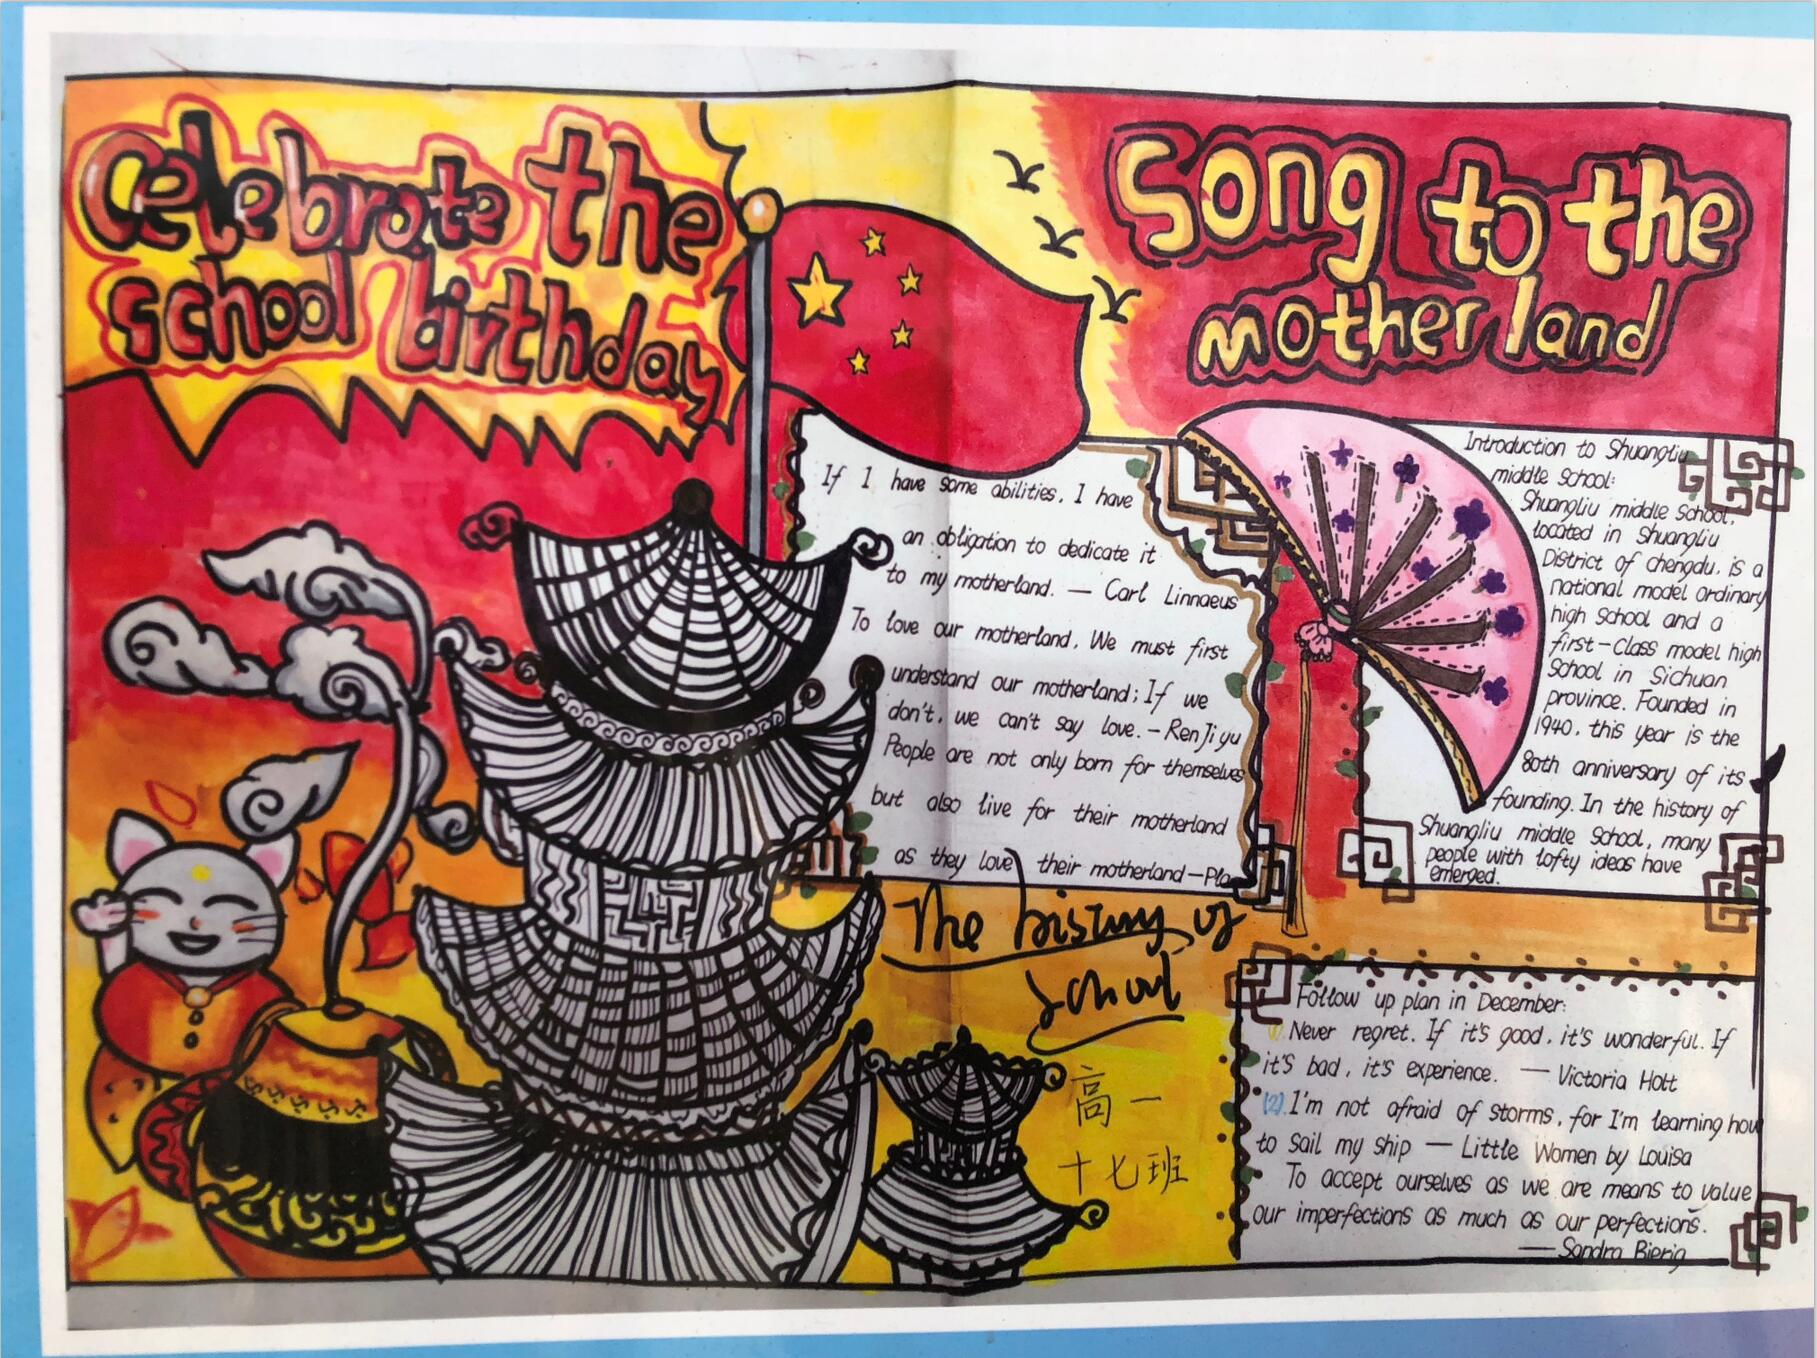 Celebrate the
school birthday
Song to the
motherland
If I have some abilities, I have
an obligation to dedicate it
to my motherland. — Carl Linnaeus
To love our motherland, We must first
understand our motherland; If we
don't, we can't say love. - Ren Ji yu
People are not only born for themselves
but also live for their motherland
as they love their motherland—
Introduction to Shuangliu
middle school:
Shuangliu middle School,
located in Shuangliu
District of chengdu, is a
national model ordinary
high school and a
first-Class model high
School in Sichuan
province. Founded in
1940, this year is the
80th anniversary of its
founding. In the history of
Shuangliu middle School, many
people with lofty ideas have
emerged.
The history of
school
高一
十七班
Follow up plan in December:
Never regret. If it's good, it's wonderful. If
it's bad, it's experience. — Victoria Hott
(2) I'm not afraid of storms, for I'm learning how
to sail my ship — Little Women by Louisa
To accept ourselves as we are means to value
our imperfections as much as our perfections.
— Sandra Bierig